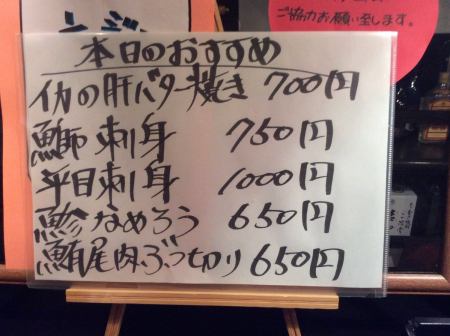 ご協力お願い至します。
本日のおすすめ
イカの肝バター焼き 700円
鰤刺身 750円
平目刺身 1000円
鯵なめろう 650円
鮪尾肉ぶつ切り 650円